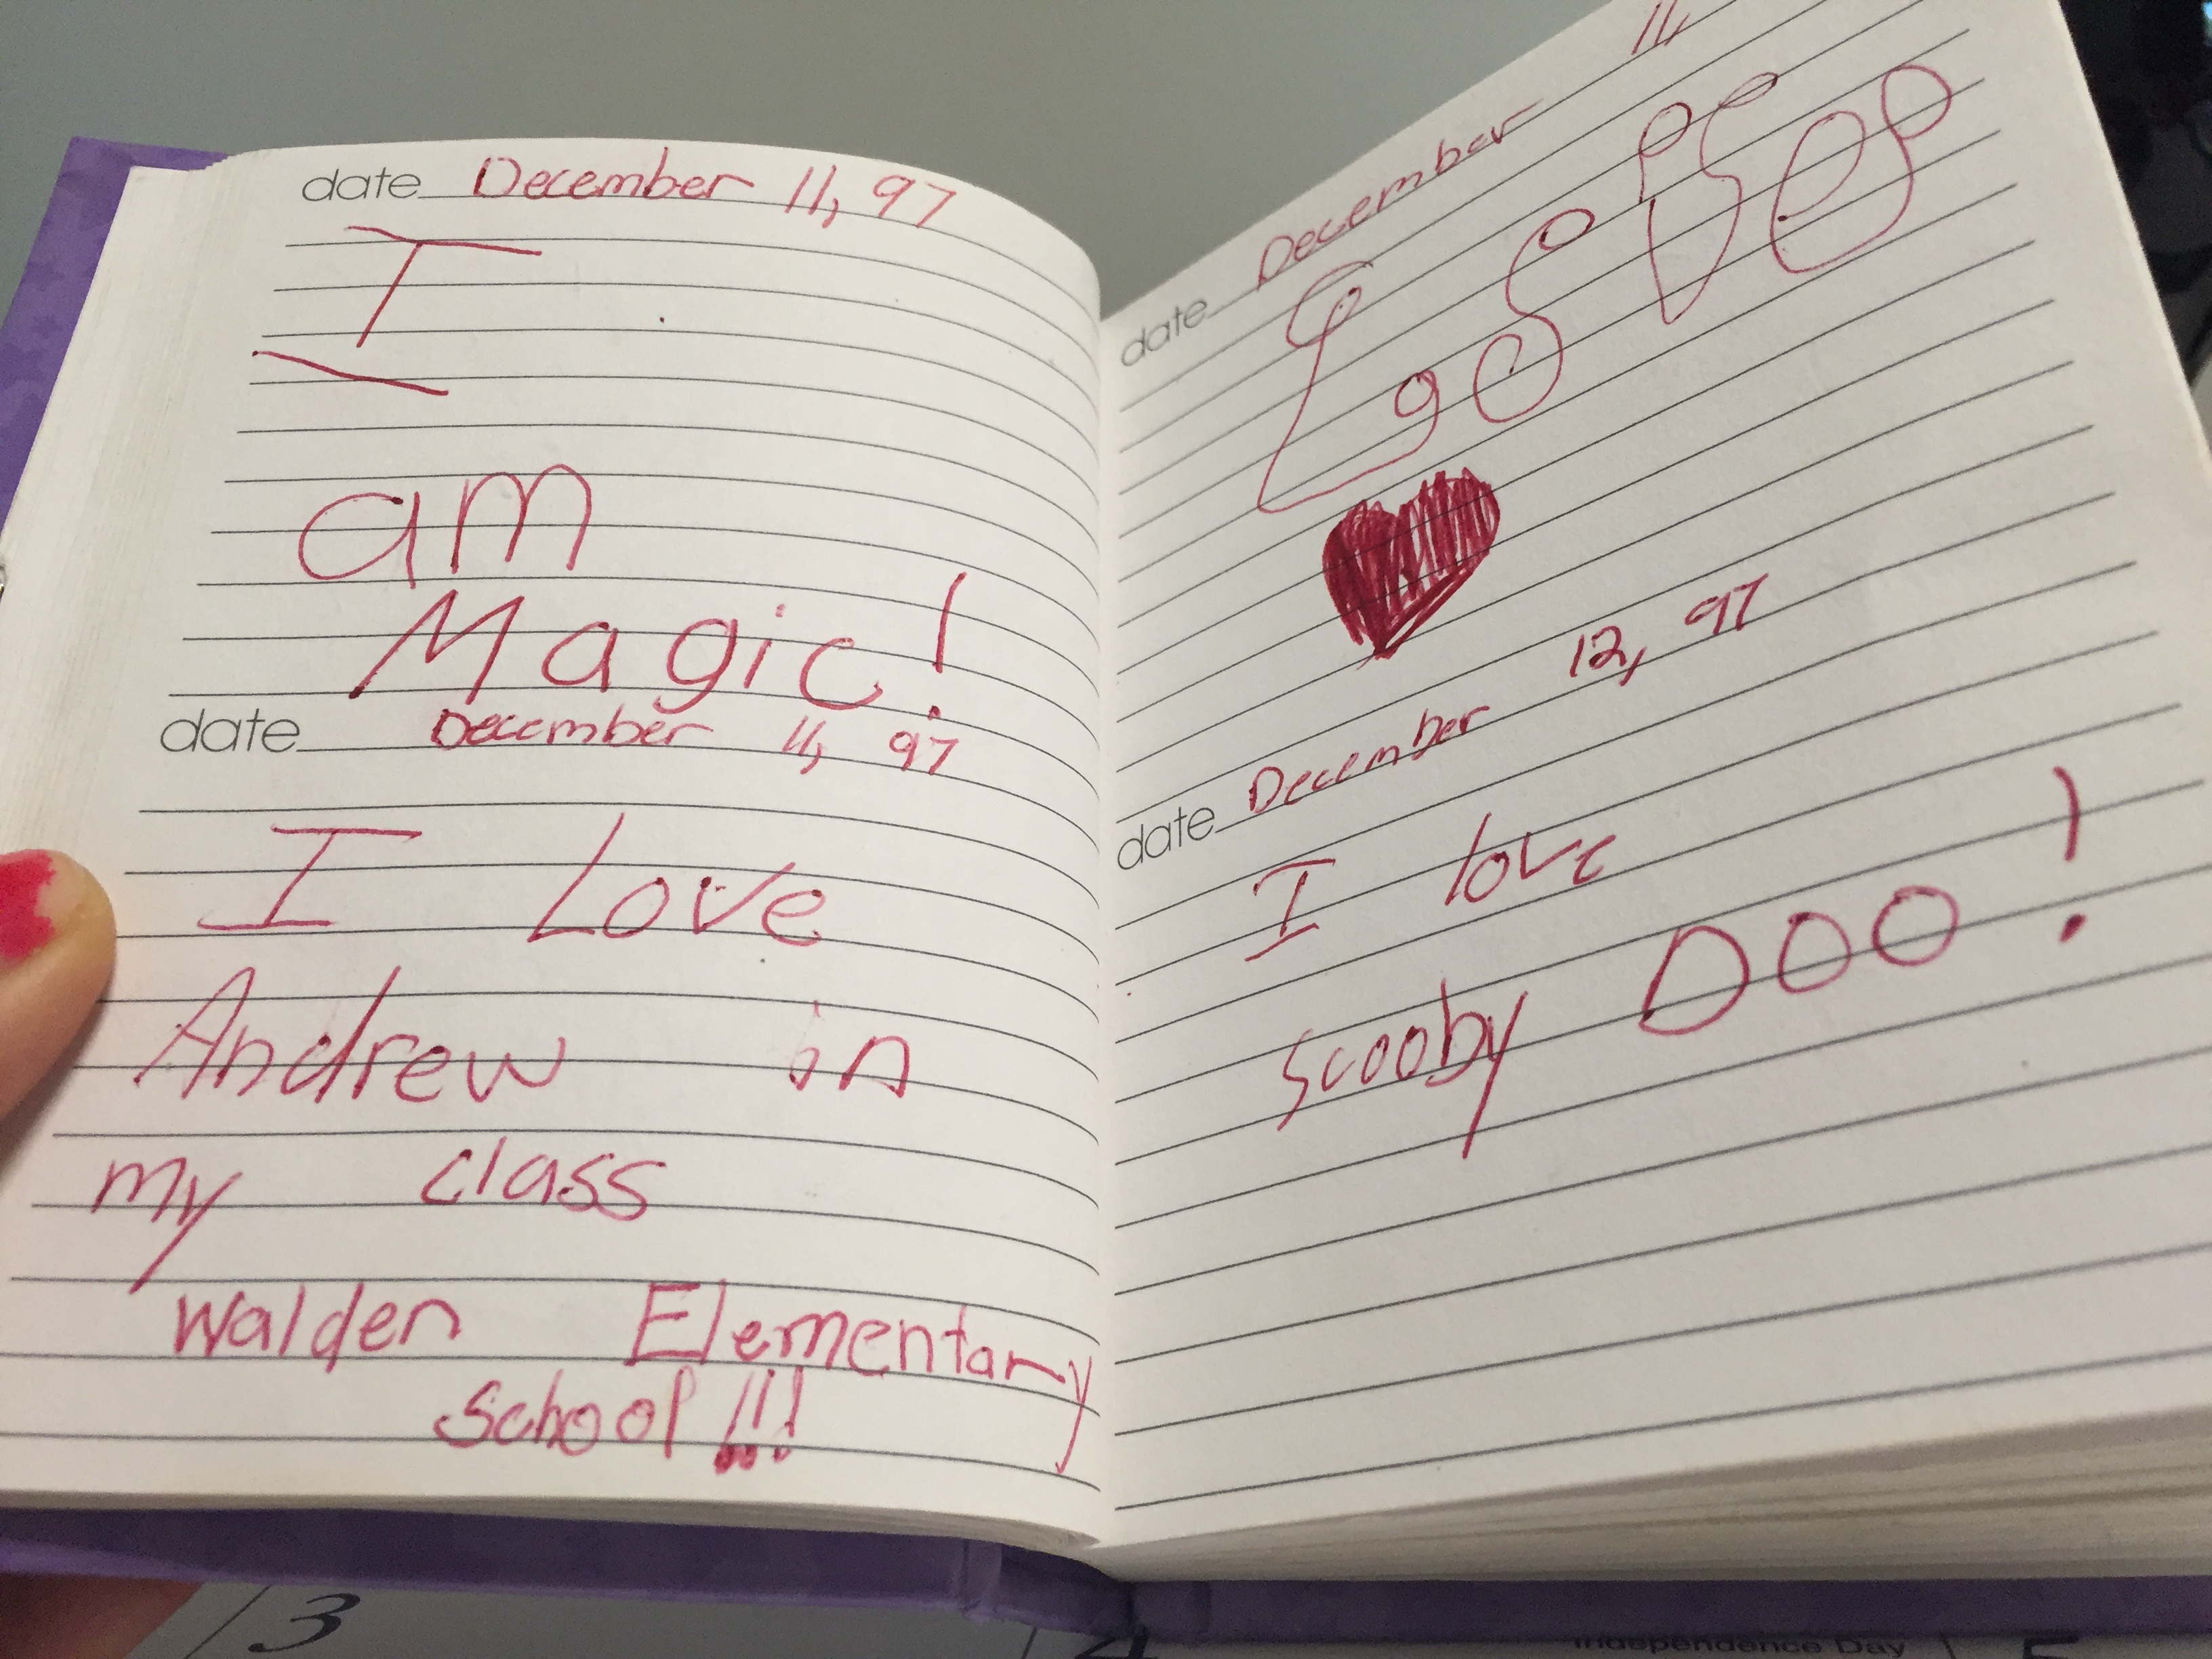 date December 11, 97
I
am
Magic!
date December 11, 97
I Love
Andrew in
my class
Walden Elementary
School!!!
date December 11,
date December 12, 97
I love
Scooby Doo!
3
4
Independence Day
5